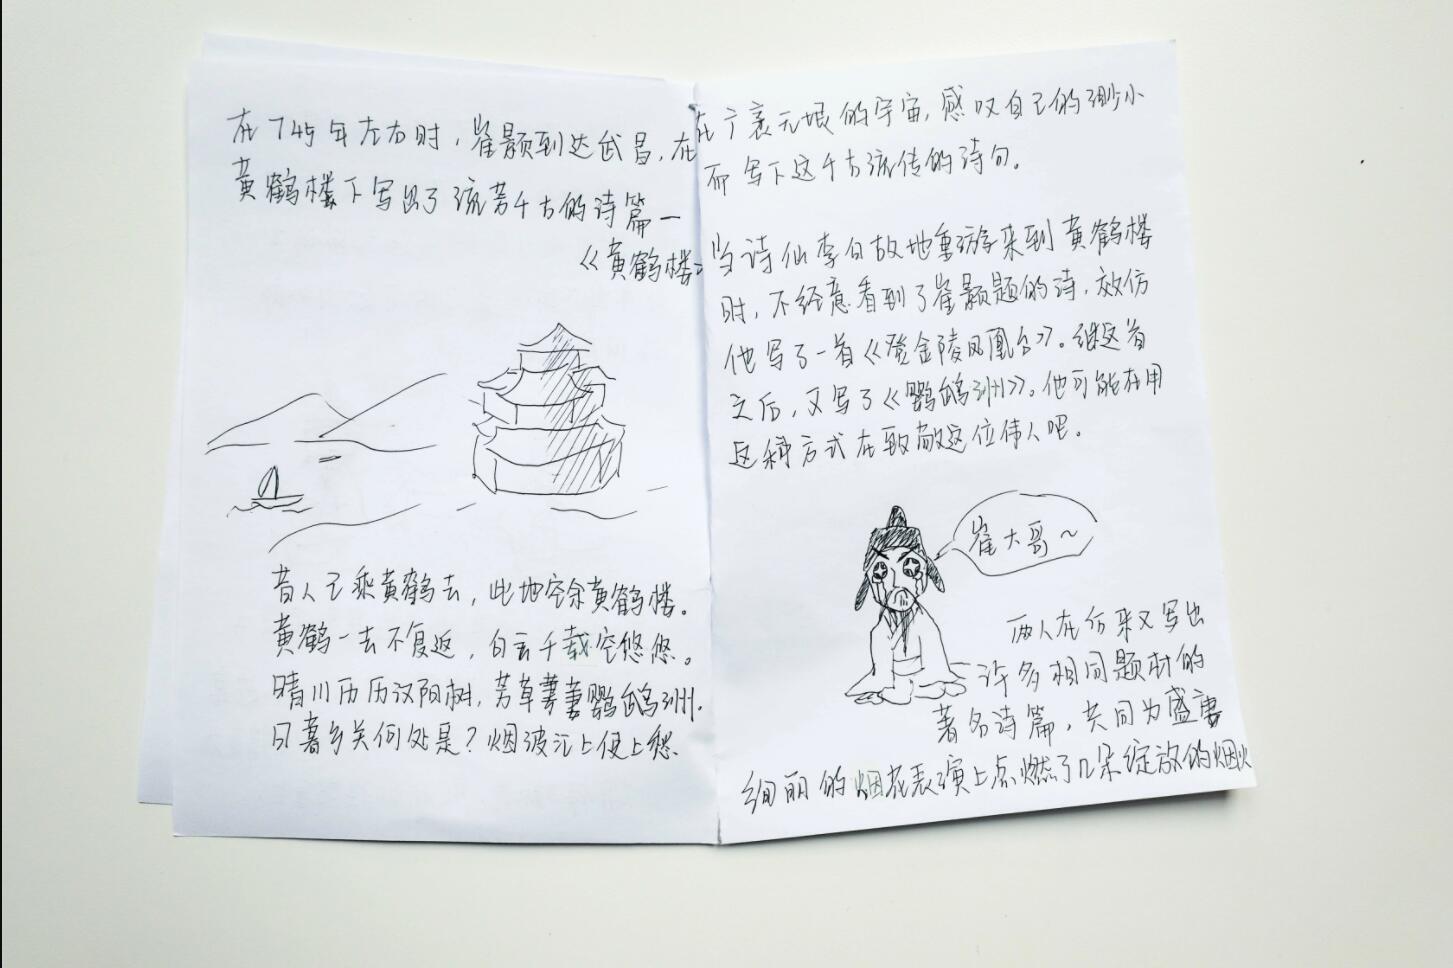 在745年左右时，崔颢到达武昌，在
黄鹤楼下写出了流芳千古的诗篇一
《黄鹤楼》
昔人已乘黄鹤去，此地空余黄鹤楼。
黄鹤一去不复返，白云千载空悠悠。
晴川历历汉阳树，芳草萋萋鹦鹉洲.
日暮乡关何处是？烟波江上使人愁.
在广袤无垠的宇宙，感叹自己的渺小
而写下这千古流传的诗句。
当诗仙李白故地重游来到黄鹤楼
时，不经意看到了崔颢题的诗，效仿
他写了一首《登金陵凤凰台》。继这首
之后，又写了《鹦鹉洲》。他可能在用
这种方式在致敬这位伟人吧。
崔大哥～
两人在后来又写出
许多相同题材的
著名诗篇，共同为盛唐
绚丽的烟花表演上点燃了几朵绽放的烟火